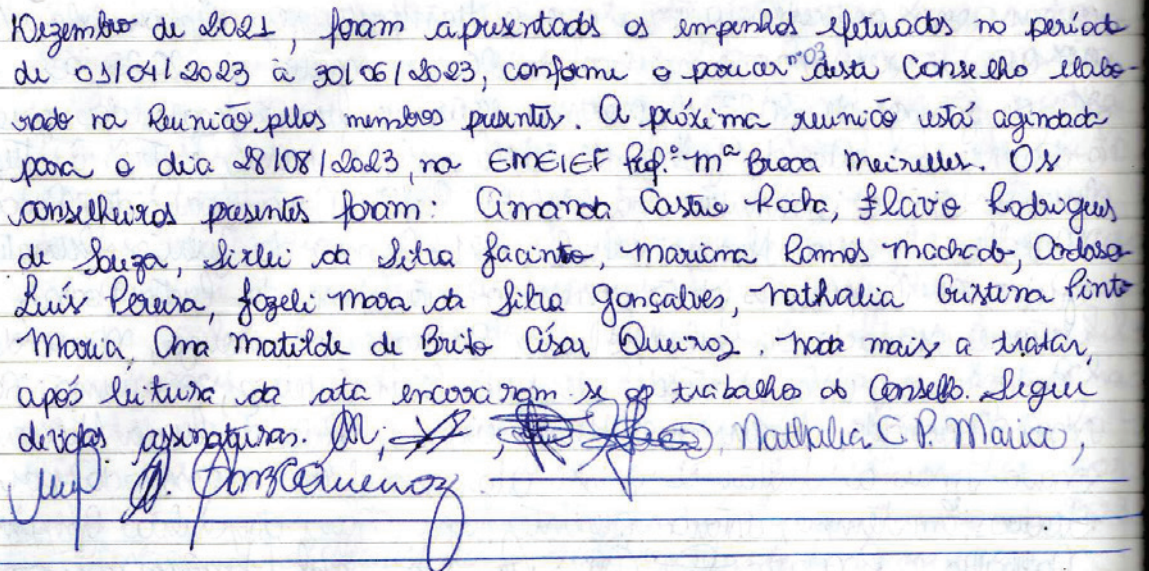 Dezembro de 2021, foram apresentados os empenhos efetuados no período
de 01/04/2023 a 30/06/2023, conforme o parecer nº03 deste Conselho elabo-
rado na Reunião pelos membros presentes. A próxima reunião está agendada
para o dia 28/08/2023, na EMEIEF Prof.ª Mª Braga Meirelles. Os
conselheiros presentes foram: Amanda Castro Rocha, Flavio Rodrigues
de Souza, Sirlei da Silva Jacinto, Mariana Ramos Machado, Cardoso
Luís Pereira, Jozeli Mara da Silva Gonçalves, Nathalia Cristina Pinto
Maria, Ana Matilde de Brito César Queiroz. Nada mais a tratar,
após leitura da ata encerraram-se os trabalhos do Conselho. Segue
devidas assinaturas. Nathalia C. P. Maria,